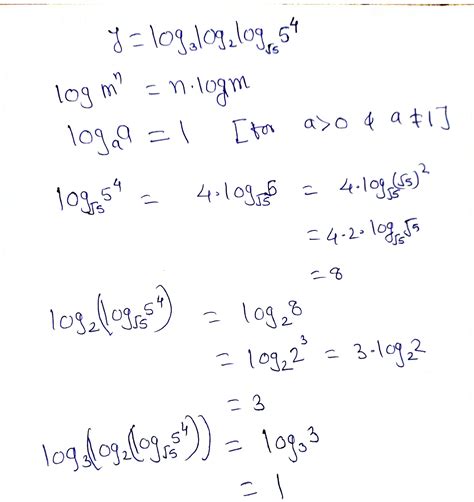 y = log₃log₂log_√5 5⁴
log mⁿ = n·logm
logₐa = 1 [for a>0 & a≠1]
log_√5 5⁴ = 4·log_√5 5 = 4·log_√5 (√5)²
= 4·2·log_√5 √5
= 8
log₂(log_√5 5⁴) = log₂8
= log₂2³ = 3·log₂2
= 3
log₃(log₂(log_√5 5⁴)) = log₃3
= 1